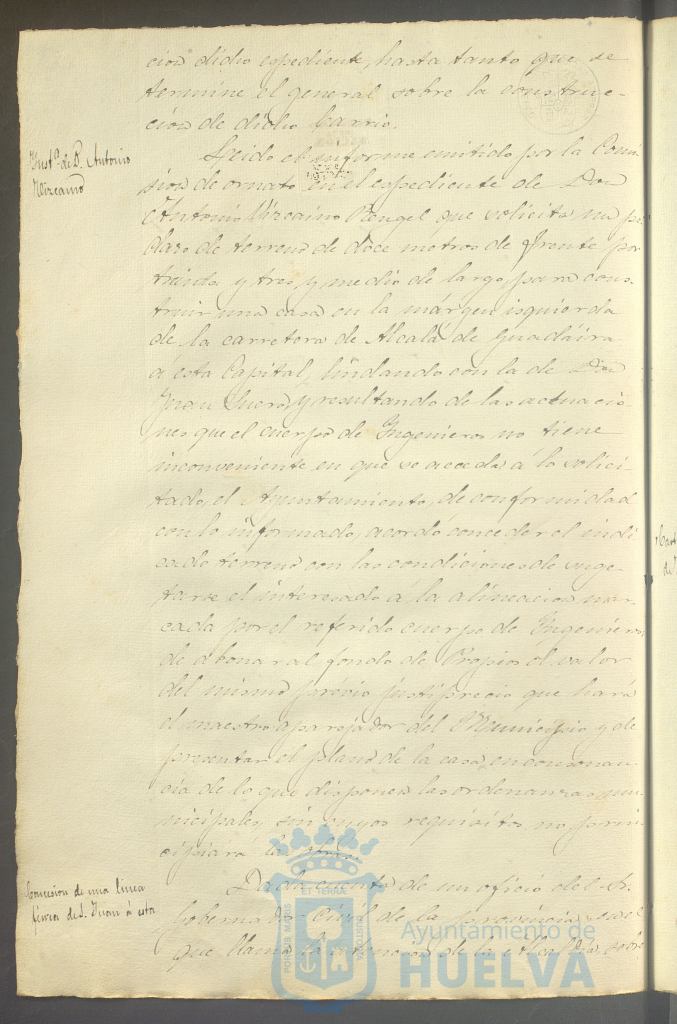 cion dicho espediente, hasta tanto que se
termine el general sobre la construc-
ción de dicho barrio.
Inst.ª de D. Antonio
Vizcaino
Leido el informe emitido por la Comi
sion de ornato en el espediente de Don
Antonio Vizcaino Rengel que solicita un pe
dazo de terreno de doce metros de frente por
treinta y tres y medio de largo, para cons-
truir una casa en la márgen izquierda
de la carretera de Alcalá de Guadaira
á esta Capital, lindando con la de Don
Juan Suero, y resultando de las actuacio
nes que el cuerpo de Ingenieros no tiene
inconveniente en que se acceda á lo solici
tado, el Ayuntamiento, de conformidad
con lo informado, acordó conceder el indi
cado terreno con las condiciones de suge-
tarse el interesado á la alineacion mar-
cada por el referido cuerpo de Ingenieros,
de abonar al fondo de Propios el valor
del mismo prévio justiprecio que hará
el maestro aparejador del Municipio y de
presentar el plano de la casa, en consonan-
cia de lo que disponen las ordenanzas mu-
nicipales, sin cuyos requisitos no prin-
cipiará la obra.
Concesion de una linea
férrea de S. Juan á esta
Dada cuenta de un oficio del Sr.
Gobernador Civil de la provincia, en el
que llama la atencion de la Alcaldia, sobre
PORTUS MARIS ET TERRAE CUSTODIA
Ayuntamiento de
HUELVA